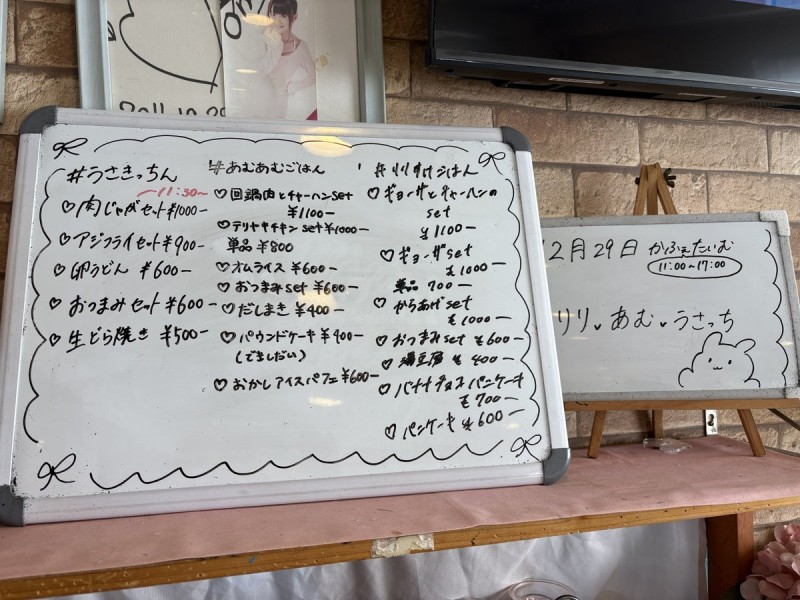 2011.10.29
#うさきっちん
〜11:30〜
♡肉じゃがセット¥1000-
♡アジフライセット¥900-
♡卵うどん ¥600-
♡おつまみセット¥600-
♡生どら焼き ¥500-
#あむあむごはん
♡回鍋肉とチャーハンset
¥1100-
♡テリヤキチキンset¥1000-
単品 ¥800
♡オムライス ¥600-
♡おつまみset ¥600-
♡だしまき ¥400-
♡パウンドケーキ¥400-
(できしだい)
♡おかしアイスパフェ¥600-
#リリすけごはん
♡ギョーザとチャーハンの
set
¥1100-
♡ギョーザset
¥1000-
単品 700-
♡からあげset
¥1000-
♡おつまみset ¥600-
♡湯豆腐 ¥400-
♡バナナチョコパンケーキ
¥700-
♡パンケーキ ¥600-
12月29日 かふぇたいむ
11:00〜17:00
リリ♥あむ♥うさっち